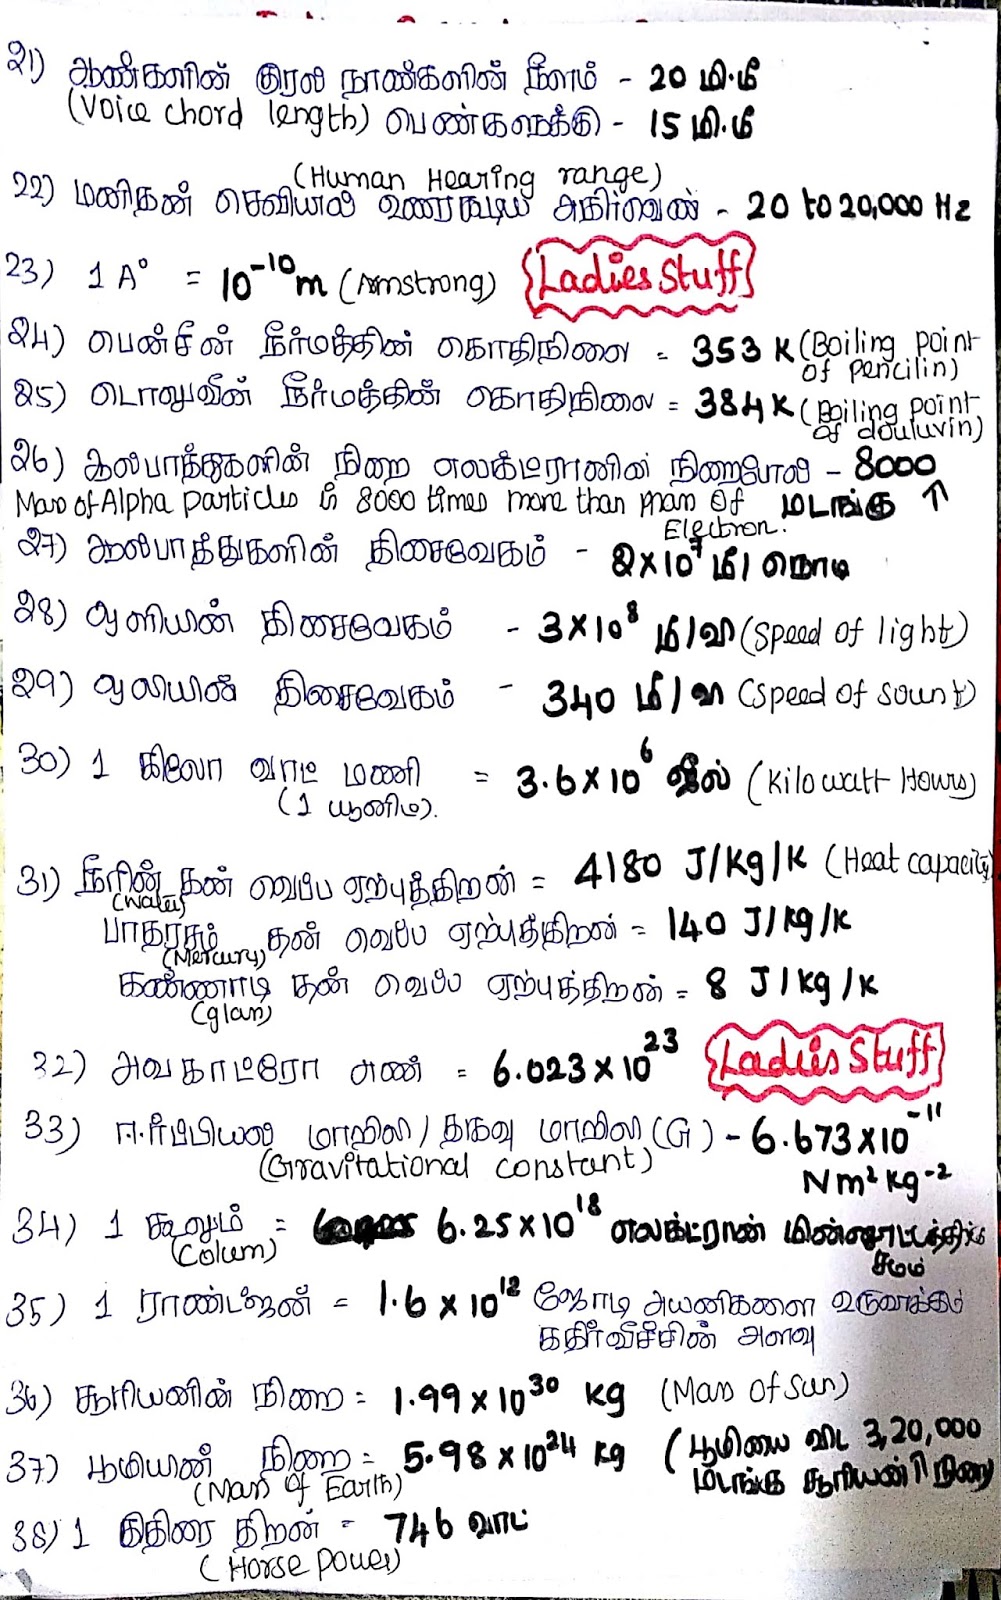 21) ஆண்களின் குரல் நாண்களின் நீளம் - 20 மி.மீ
(Voice chord length) பெண்களுக்கு - 15 மி.மீ
(Human Hearing range)
22) மனிதன் செவியால் உணரகூடிய அதிர்வெண் - 20 to 20,000 Hz
23) 1 A° = 10⁻¹⁰ m (Armstrong) Ladies Stuff
24) பென்சீன் நீர்மத்தின் கொதிநிலை = 353 K (Boiling point
of pencilin)
25) டொலுவீன் நீர்மத்தின் கொதிநிலை = 384 K (Boiling point
of douluvin)
26) ஆல்பாத்துகளின் நிறை எலக்ட்ரானின் நிறைபோல் - 8000
Mass of Alpha particles is 8000 times more than mass of மடங்கு ↑
Electron.
27) ஆல்பாத்துகளின் திசைவேகம் - 2×10⁷ மீ/நொடி
28) ஒளியின் திசைவேகம் - 3×10⁸ மீ/வி (Speed of light)
29) ஒலியின் திசைவேகம் - 340 மீ/வி (speed of sount)
30) 1 கிலோ வாட் மணி = 3.6×10⁶ ஜீல் (Kilo watt Hours)
(1 யூனிட்).
31) நீரின் தன் வெப்ப ஏற்புத்திறன் = 4180 J/Kg/K (Heat capacity)
(Water)
பாதரசம் தன் வெப்ப ஏற்புத்திறன் = 140 J/Kg/K
(Mercury)
கண்ணாடி தன் வெப்ப ஏற்புத்திறன் = 8 J/kg/K
(glass)
32) அவகாட்ரோ எண் = 6.023×10²³ Ladies Stuff
33) ஈர்ப்பியல் மாறிலி / தகவு மாறிலி (G) - 6.673×10⁻¹¹
(Gravitational constant) Nm² kg⁻²
34) 1 கூலும் = 6.25×10¹⁸ எலக்ட்ரான் மின்னூட்டத்திற்கு
(Colum) சமம்
35) 1 ராண்ட்ஜன் = 1.6×10¹² ஜோடி அயனிகளை உருவாக்கும்
கதிர்வீச்சின் அளவு
36) சூரியனின் நிறை = 1.99×10³⁰ kg (Mass of Sun)
37) பூமியின் நிறை = 5.98×10²⁴ kg (பூமியை விட 3,20,000
(Mass of Earth) மடங்கு சூரியனின் நிறை)
38) 1 குதிரை திறன் = 746 வாட்
(Horse power)